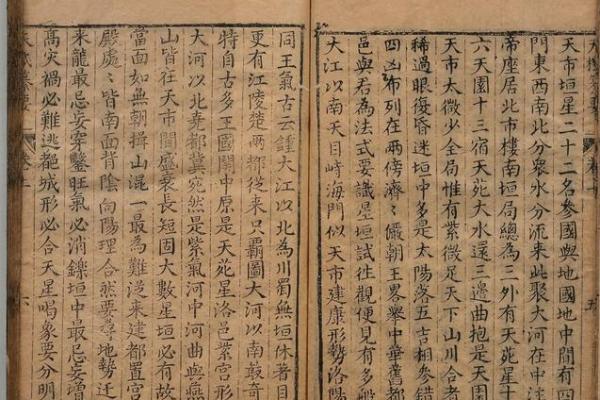 天市垣星二十二名參國與地國地中間有四
門東西南北分衆水分流来此聚大河在中
帝座居北市樓南垣局總為三外有天苑星十
六天園十三宿天苑大水還三邊曲抱是天園
天市太微少全局惟有紫微足天下山川合者
稀過眼復昏迷垣中多是太陽落五吉相參錯
四凶布列在兩傍濟〻儼朝王畧舉中華舊都
邑與君為法式要識星垣試往觀便見有多般
大江以南天目峙海門似天市建康形勢洛陽
同王氣古云鍾大江以北為川蜀無垣休著目
更有江陵楚兩都從来只霸圖大河以南敲奇
特自古多王國關中原是天苑星洛邑紫宮形
大河以北堯都冀宛然是紫氣河中河曲與燕
山皆在天市間盛衰長短固大數星垣必有故
當面如無朝揖山混一最為難逆来建都置宮
殿處〻皆南面背陰向陽理合然要尋地勢迁
来龍最忌妄穿鑿旺氣必消鑠垣中最忌妄增
高灾禍必難逃都城形必合天星喝象要分明
六